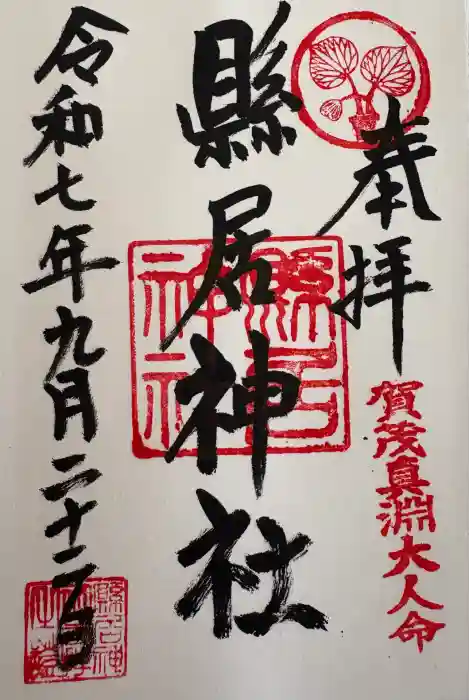 奉拝
賀茂真淵大人命
縣居神社
縣居神社
令和七年九月二十二日